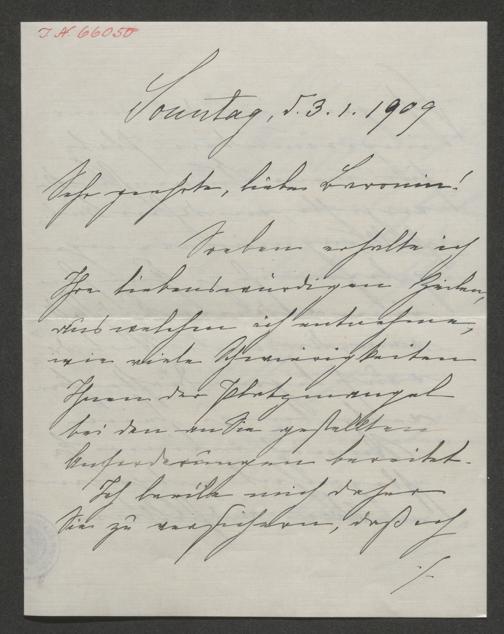 I.N. 66058
Sonntag, d. 3. 1. 1909
Sehr geehrte, liebe Baronin!
Soeben erhalte ich
Ihre liebenswürdigen Zeilen,
aus welchen ich entnehme,
wie viele Schwierigkeiten
Ihnen der Platzmangel
bei den an Sie gestellten
Anforderungen bereitet.
Ich beeile mich daher
Sie zu versichern, daß ich
./.